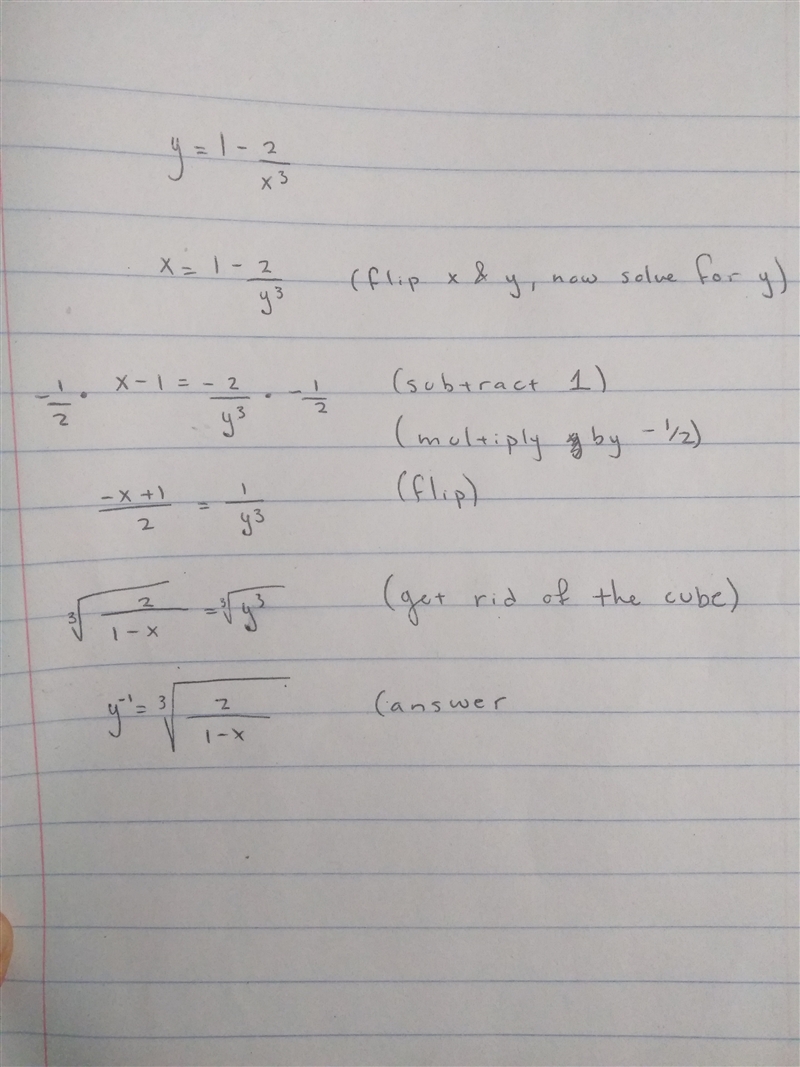 y = 1 - 2/x³
x = 1 - 2/y³ (flip x & y, now solve for y)
-1/2 · x - 1 = - 2/y³ · -1/2 (subtract 1)
(multiply by -1/2)
-x+1/2 = 1/y³ (flip)
∛(2/1-x) = ∛y³ (get rid of the cube)
y⁻¹ = ∛(2/1-x) (answer